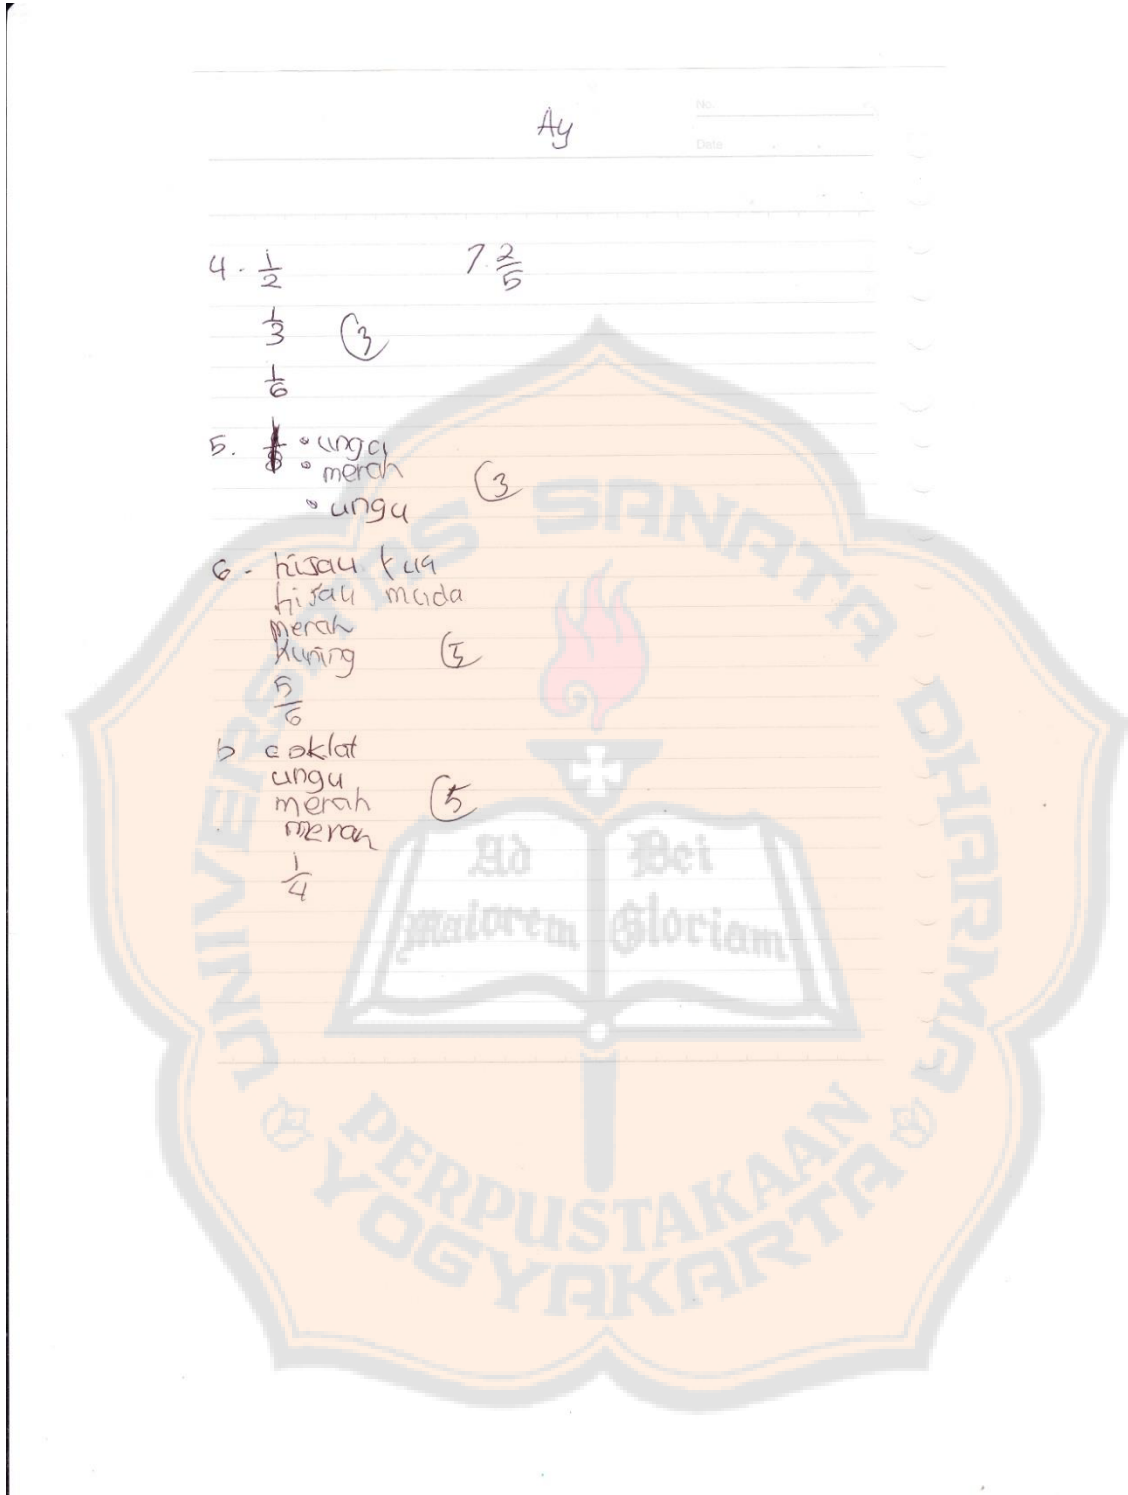 Ay
No.
Date
4. 1/2
1/3 3
1/6
7. 2/5
5. • ungu
• merah
• ungu
3
6. hijau tua
hijau muda
merah
kuning 5
5/6
b coklat
ungu
merah 5
merah
1/4
UNIVERSITAS SANATA DHARMA
Ad Maiorem
Dei Gloriam
PERPUSTAKAAN
YOGYAKARTA